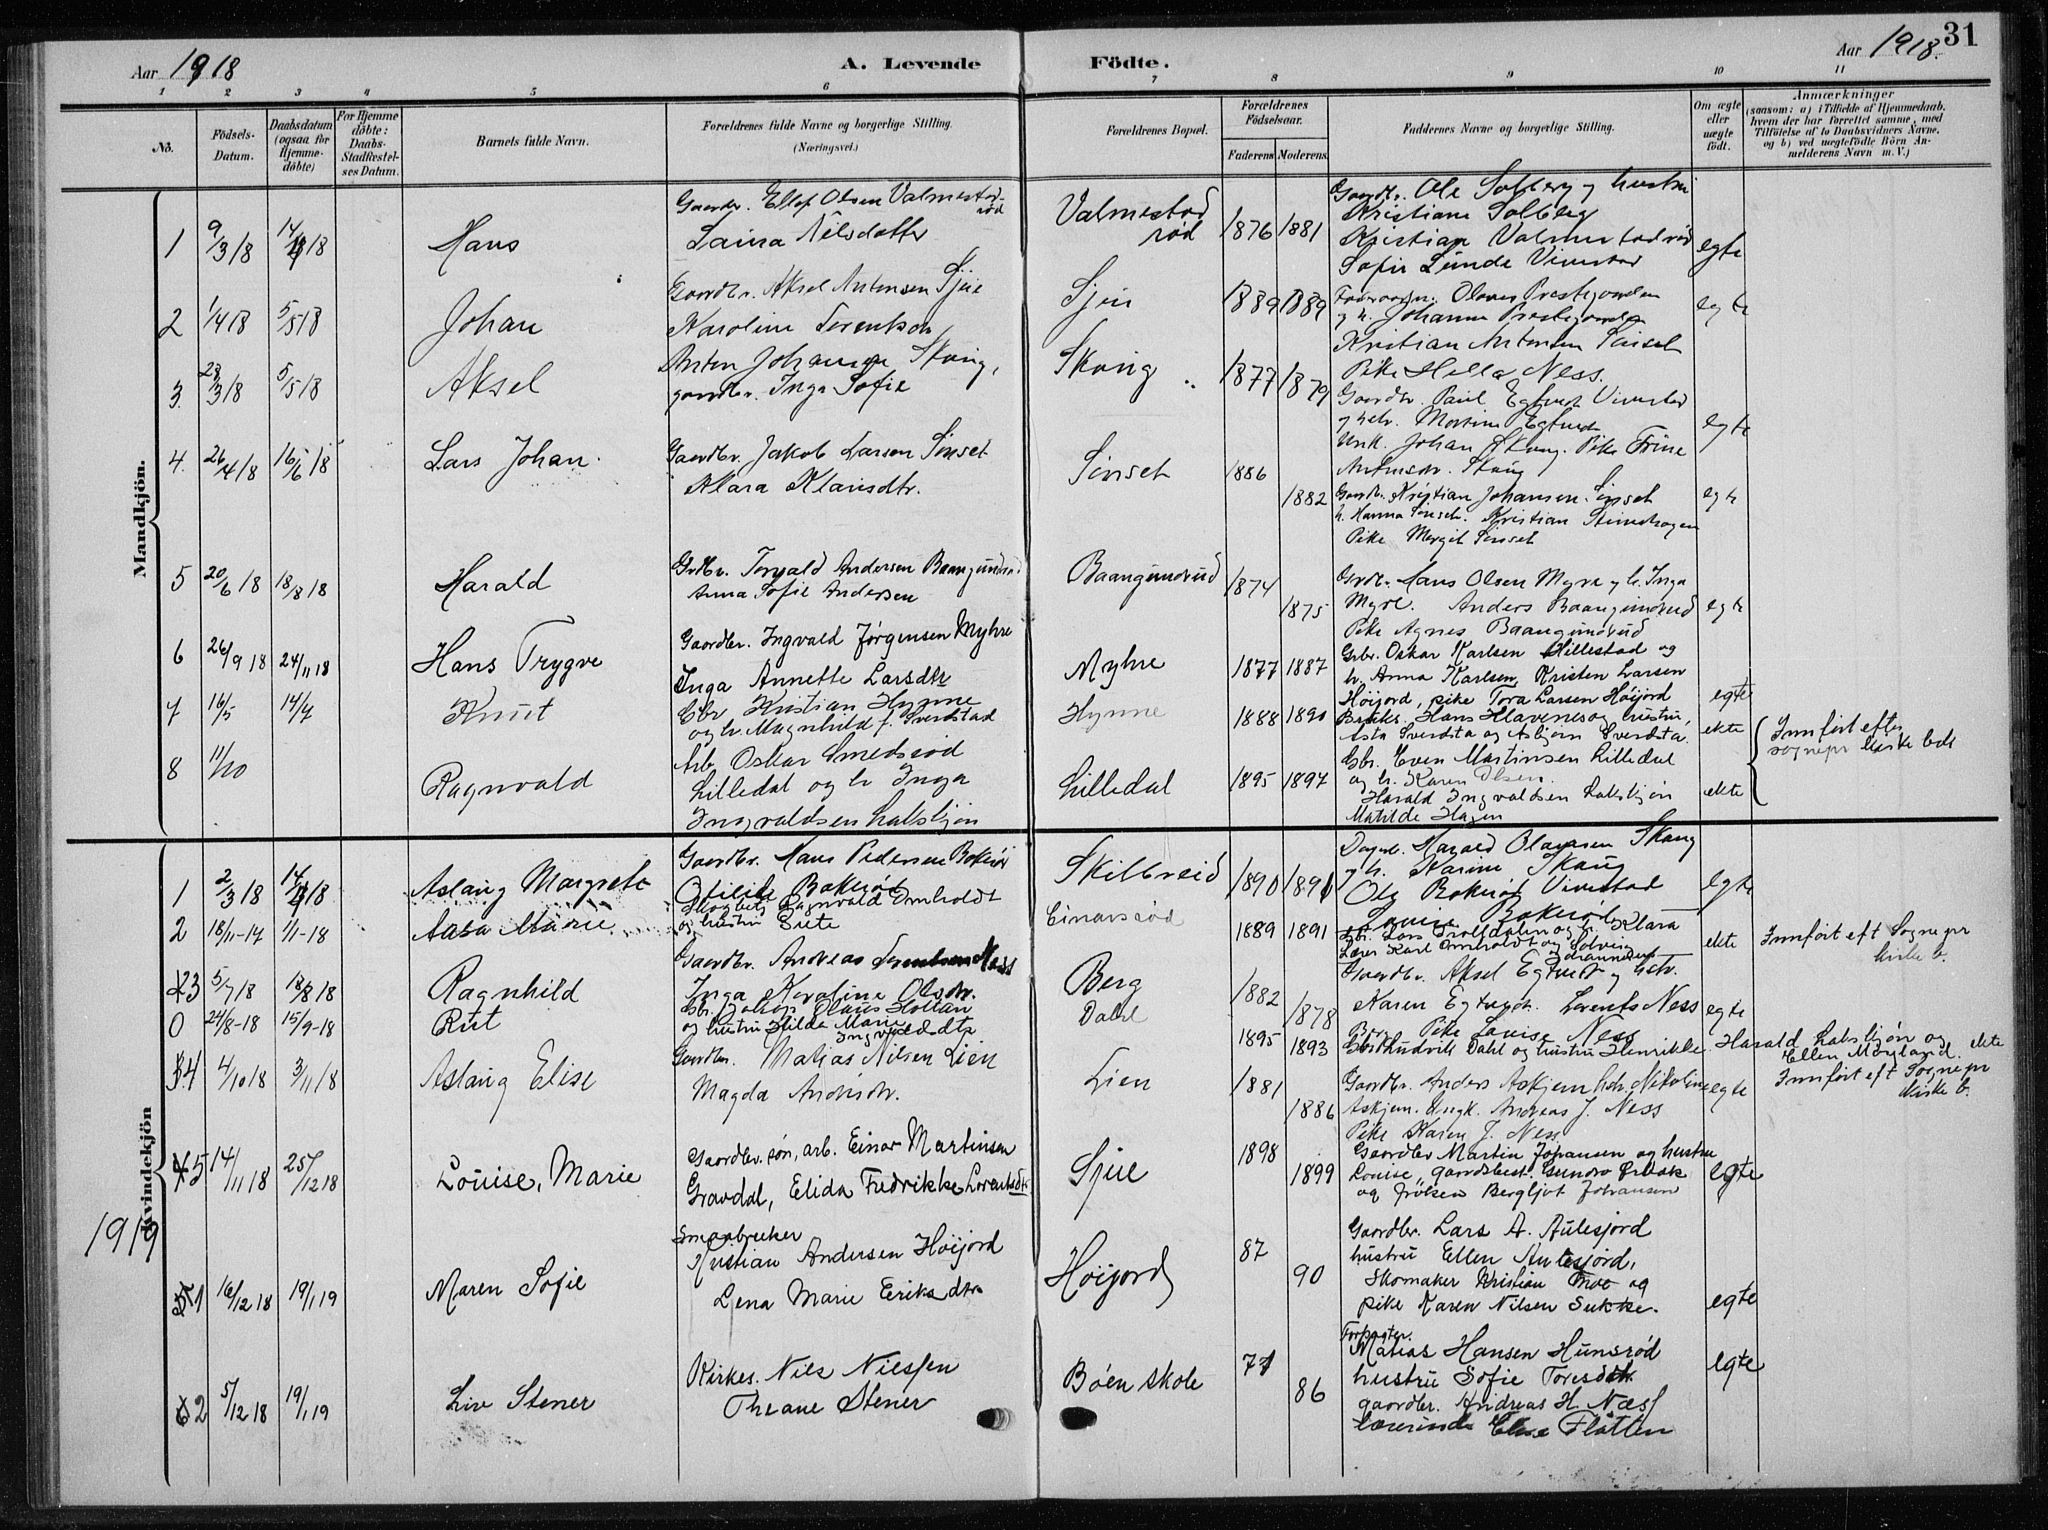 Aar 1918
A. Levende
Födte.
Aar 1918.
31
1 2 3 4 5 6 7 8 9 10 11
No.
Födsels-Datum.
Daabsdatum (ogsaa for Hjemme-döbte)
For Hjemme döbte: Daabs-Stadfæstel-ses Datum.
Barnets fulde Navn.
Forældrenes fulde Navne og borgerlige Stilling. (Næringsvei.)
Forældrenes Bopæl.
Forældrenes Födselsaar.
Faderens Moderens
Faddernes Navne og borgerlige Stilling.
Om ægte eller uægte födt.
Anmærkninger
(saasom: a) i Tilfælde af Hjemmedaab, hvem der har forrettet samme, med Tilföielse af to Daabsvidners Navne, og b) ved uægtefödte Börn An-melderens Navn m. V.)
Mandkjön.
1 9/3 18 14/4 18 Hans
Gaardbr. Ellef Olsen Valmestadrød
Laura Nilsdatter
Valmestad rød 1876 1881
Gaardbr. Ole Solberg og hustru
Kristiane Solberg
Kristian Valmestadrød
Sofie Lunde Vivestad
egte
2 1/4 18 5/5 18 Johan
Gaardbr. Aksel Antonsen Sjue
Karoline Lorentsdr.
Sjue 1889 1889
Olaves Prestegaarden
og h. Johanne Prestegaarden
Kristian Antonsen Sønset
Pike Helle Ness.
egte
3. 28/3 18 5/5 18 Aksel
Anton Johansen Skaug,
gaardbr. Inga Sofie
Skaug 1877 1879
Gaardbr. Paul Egtvedt Vivestad
og hstr. Martine Egtvedt
Unk. Johan Skaug. Pike Trine
Antonsdr. Skaug
egte
4. 26/4 18 16/6 18 Lars Johan.
Gaardbr. Jakob Larsen Sønset
Klara Klausdtr.
Sønset 1886 1882
Gaardbr. Kristian Johansen Sønset
h. Hanna Sønset. Kristian Steinshagen
Pike Margit Sønset
egte
5 20/6 18 18/8 18 Harald
Grdbr. Torvald Andersen Baangundrud
Anna Sofie Andersen
Baangundrud 1874 1875
Grdbr. Hans Olsen Myre og h. Inga
Myre. Anders Baangundrud
Pike Agnes Baangundrud
egte
6 26/9 18 24/11 18 Hans Trygve
Gaardbr. Ingvald Jørgensen Myhre
Inga Annette Larsdtr
Myhre 1877 1887
Grbr. Oskar Karlsen Hillestad og
h. Anna Karlsen, Kristen Larsen
Høijord, pike Tora Larsen Høijord
egte
7 16/5 14/7 Knut
Gbr Kristian Hynne
og h. Magnhild f. Sverdstad
Hynne 1888 1890
Hans Klavenes og hustru,
Asta Sverdsta og Asbjørn Sverdsta.
ekte
8 11/10 Ragnvald
Arb. Oskar Smedsrød
Lilledal og h Inga
Ingvaldsen Labsbjøn
Lilledal 1895 1897
Gbr. Even Martinsen Lilledal
og h. Karen Olsen.
Harald Ingvaldsen Labsbjøn
Matilde Hagen
ekte
Innført efter
sognepr kirke bok
Kvindekjön
1 2/3 18 14/4 18 Aslaug Margrete
Gaardbr. Hans Pedersen Bakerød
Otilie Bakerød
Skilbreid 1890 1891
Harald Olavesen Skaug
og h. Karine Skaug
Ole Bakerød Vivestad
Louise Bakerød
egte
2 18/11-17 1/1-18 Aasa Marie
Ragnvald Omholdt
og hustru Grete
Einarsrød 1889 1891
Gbr. Lars Trolldalen og h. Klara
Lærer Karl Omholdt og Solveig
Johannesen
ekte Innført eft Sognepr
kirke b.
3 5/7 18 18/8 18 Ragnhild
Gaardbr. Andreas Lorentsen Ness
Inga Karoline Olsdr.
Berg 1882 1878
Gaardbr. Aksel Egtvedt og hstr.
Karen Egtvedt. Lorents Ness
Berg Pike Lovise Ness
egte
0 24/8-18 15/9-18 Rut
Gbr. Jakob Olaus Holtan
og hustru Hilda Marie
Ingvaldsdtr
Dahl 1895 1893
Gbr Hudvik Dahl og hustru Henrikke. Harald Labsbjøn og
Ellen Moland. ekte
Innført eft Sognepr
kirke b.
4 4/10 18 3/11 18 Aslaug Elise
Gaardbr. Matias Nilsen Lien
Magda Andrsdr.
Lien 1881 1886
Gaardbr. Anders Askjem hstr. Nikoline
Askjem. Ungk. Andreas J. Ness
Pike Karen J. Ness
egte
5 14/11 18 25/12 18 Louise, Marie
Gaardbr. søn, arb. Einar Martinsen
Gravdal, Elida Fredrikke Lorentsdtr
Sjue 1898 1899
Gaardbr Martin Johansen og hustru
Louise, gaardbest. Gunda Gravdal
og frøken Bergljot Johansen
egte
1919
1 16/12 18 19/1 19 Maren Sofie
Smaabruker
Kristian Andersen Høijord
Lena Marie Eriksdtr
Høijord 87 90
Gaardbr. Lars A. Aulesjord
hustru Ellen Aulesjord,
Skomaker Kristian Moe og
pike Karen Nilsen Sukke.
egte
2 5/12 18 19/1 19 Liv Stener
Kirkes. Nils Nilssen
Theane Stener
Bøen skole 77 86
Forpagter.
Matias Hansen Hunsrød
hustru Sofie Toresdtr
gaardbr. Andreas H. Næss
lærerinde Else Flatten
egte